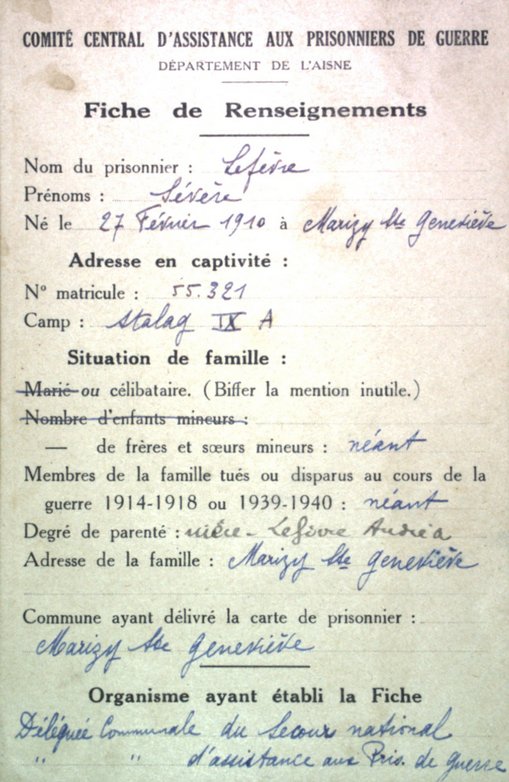 COMITÉ CENTRAL D'ASSISTANCE AUX PRISONNIERS DE GUERRE
DÉPARTEMENT DE L'AISNE
Fiche de Renseignements
Nom du prisonnier : Lefèvre
Prénoms : Sévère
Né le 27 Février 1910 à Marizy Ste Geneviève
Adresse en captivité :
N° matricule : 55.321
Camp : Stalag IX A
Situation de famille :
Marié ou célibataire. (Biffer la mention inutile.)
Nombre d'enfants mineurs :
— de frères et sœurs mineurs : néant
Membres de la famille tués ou disparus au cours de la
guerre 1914-1918 ou 1939-1940 : néant
Degré de parenté : mère - Lefèvre Andréa
Adresse de la famille : Marizy Ste Geneviève
Commune ayant délivré la carte de prisonnier :
Marizy Ste Geneviève
Organisme ayant établi la Fiche
Déléguée Communale du Secour national
" " d'assistance aux Pris. de guerre